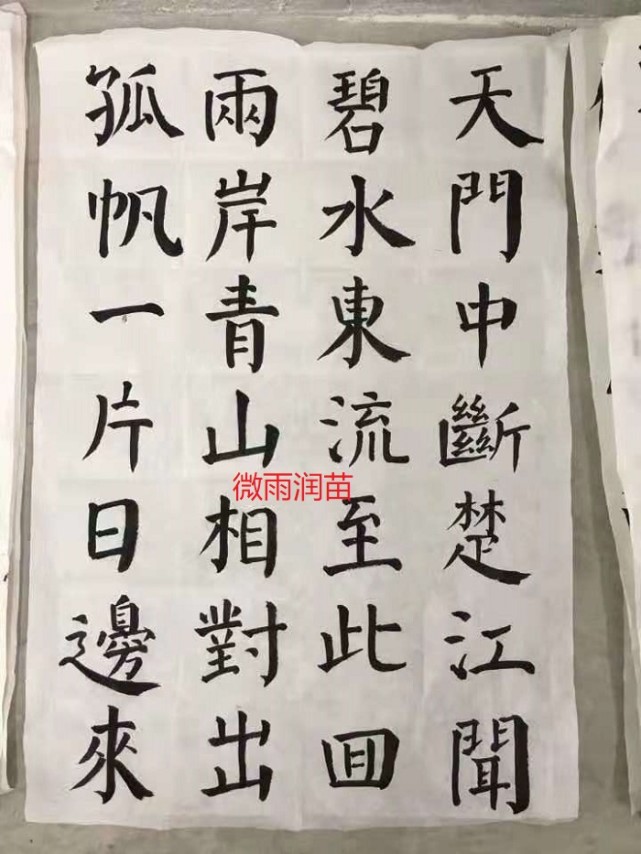 天門中斷楚江聞
碧水東流至此囬
兩岸青山相對出
孤帆一片日邊來
微雨润苗